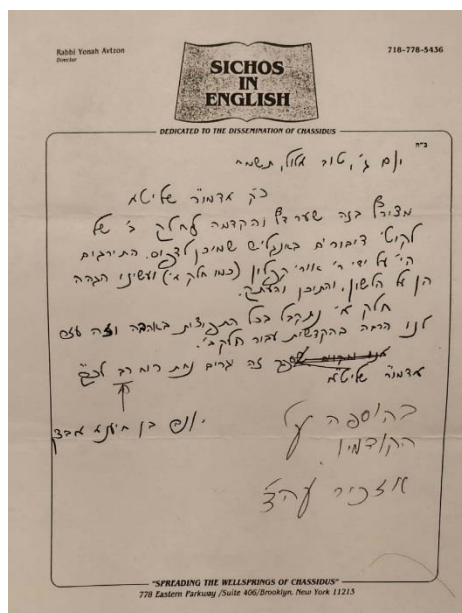 Rabbi Yonah Avtzon
Director
718-778-5436
SICHOS
IN
ENGLISH
DEDICATED TO THE DISSEMINATION OF CHASSIDUS
ב"ה
יום ג', טוב אלול, תשמ"ח
כ"ק אדמו"ר שליט"א
מצורף בזה שער דף והקדמה לחלק ב' של
לקוטי דיבורים באנגלית שמוכן לדפוס. התירגום
הי' על ידי ר' אורי קפלין (כמו חלק א') ועשינו הגהה
הן על הלשון, והתוכן
חלק א' נתקבל בכל התפוצות באהבה וזה
לנו הרבה עבור חלק ב'.
זה גרם נחת רוח רב לכ"ק
אדמו"ר שליט"א
יונה בן אבצן
בהוספה על
הקודמין
אזכיר עה"צ
"SPREADING THE WELLSPRINGS OF CHASSIDUS"
778 Eastern Parkway /Suite 406/Brooklyn, New York 11213